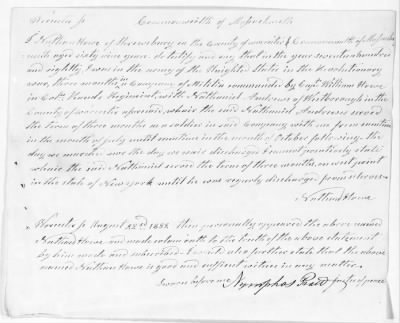 Worcester ss Commonwealth of Massachusetts
I Nathan Howe of Shrewsbury in the County of Worcester & Commonwealth of Massachu
aged sixty nine years do testify and say that in the year seventeen hundred
and eighty I was in the army of the United States in the Revolutionary
war, three months in Company of Militia commanded by Capt William Howe
in Colo Regiment with Nathaniel of in the
County of Worcester aforesaid, where the said Nathaniel served
the term of three months as soldier in said Company with me from sometime
in the month of July until sometime in the month of October following the
day we marched nor the day we were discharged I cannot positively state
where the said Nathaniel served the term of three months, on west point
in the state of New york until he was regularly discharged from service
Nathan Howe
Worcester ss August 22nd 1832 then personally appeared the above named
Nathan Howe and made solemn oath to the truth of the above statement
by him made and subscribed I would also further state that the above
named Nathan Howe is good and sufficient witness in any matter
Sworn before me Nymphas Pratt Justice of peace